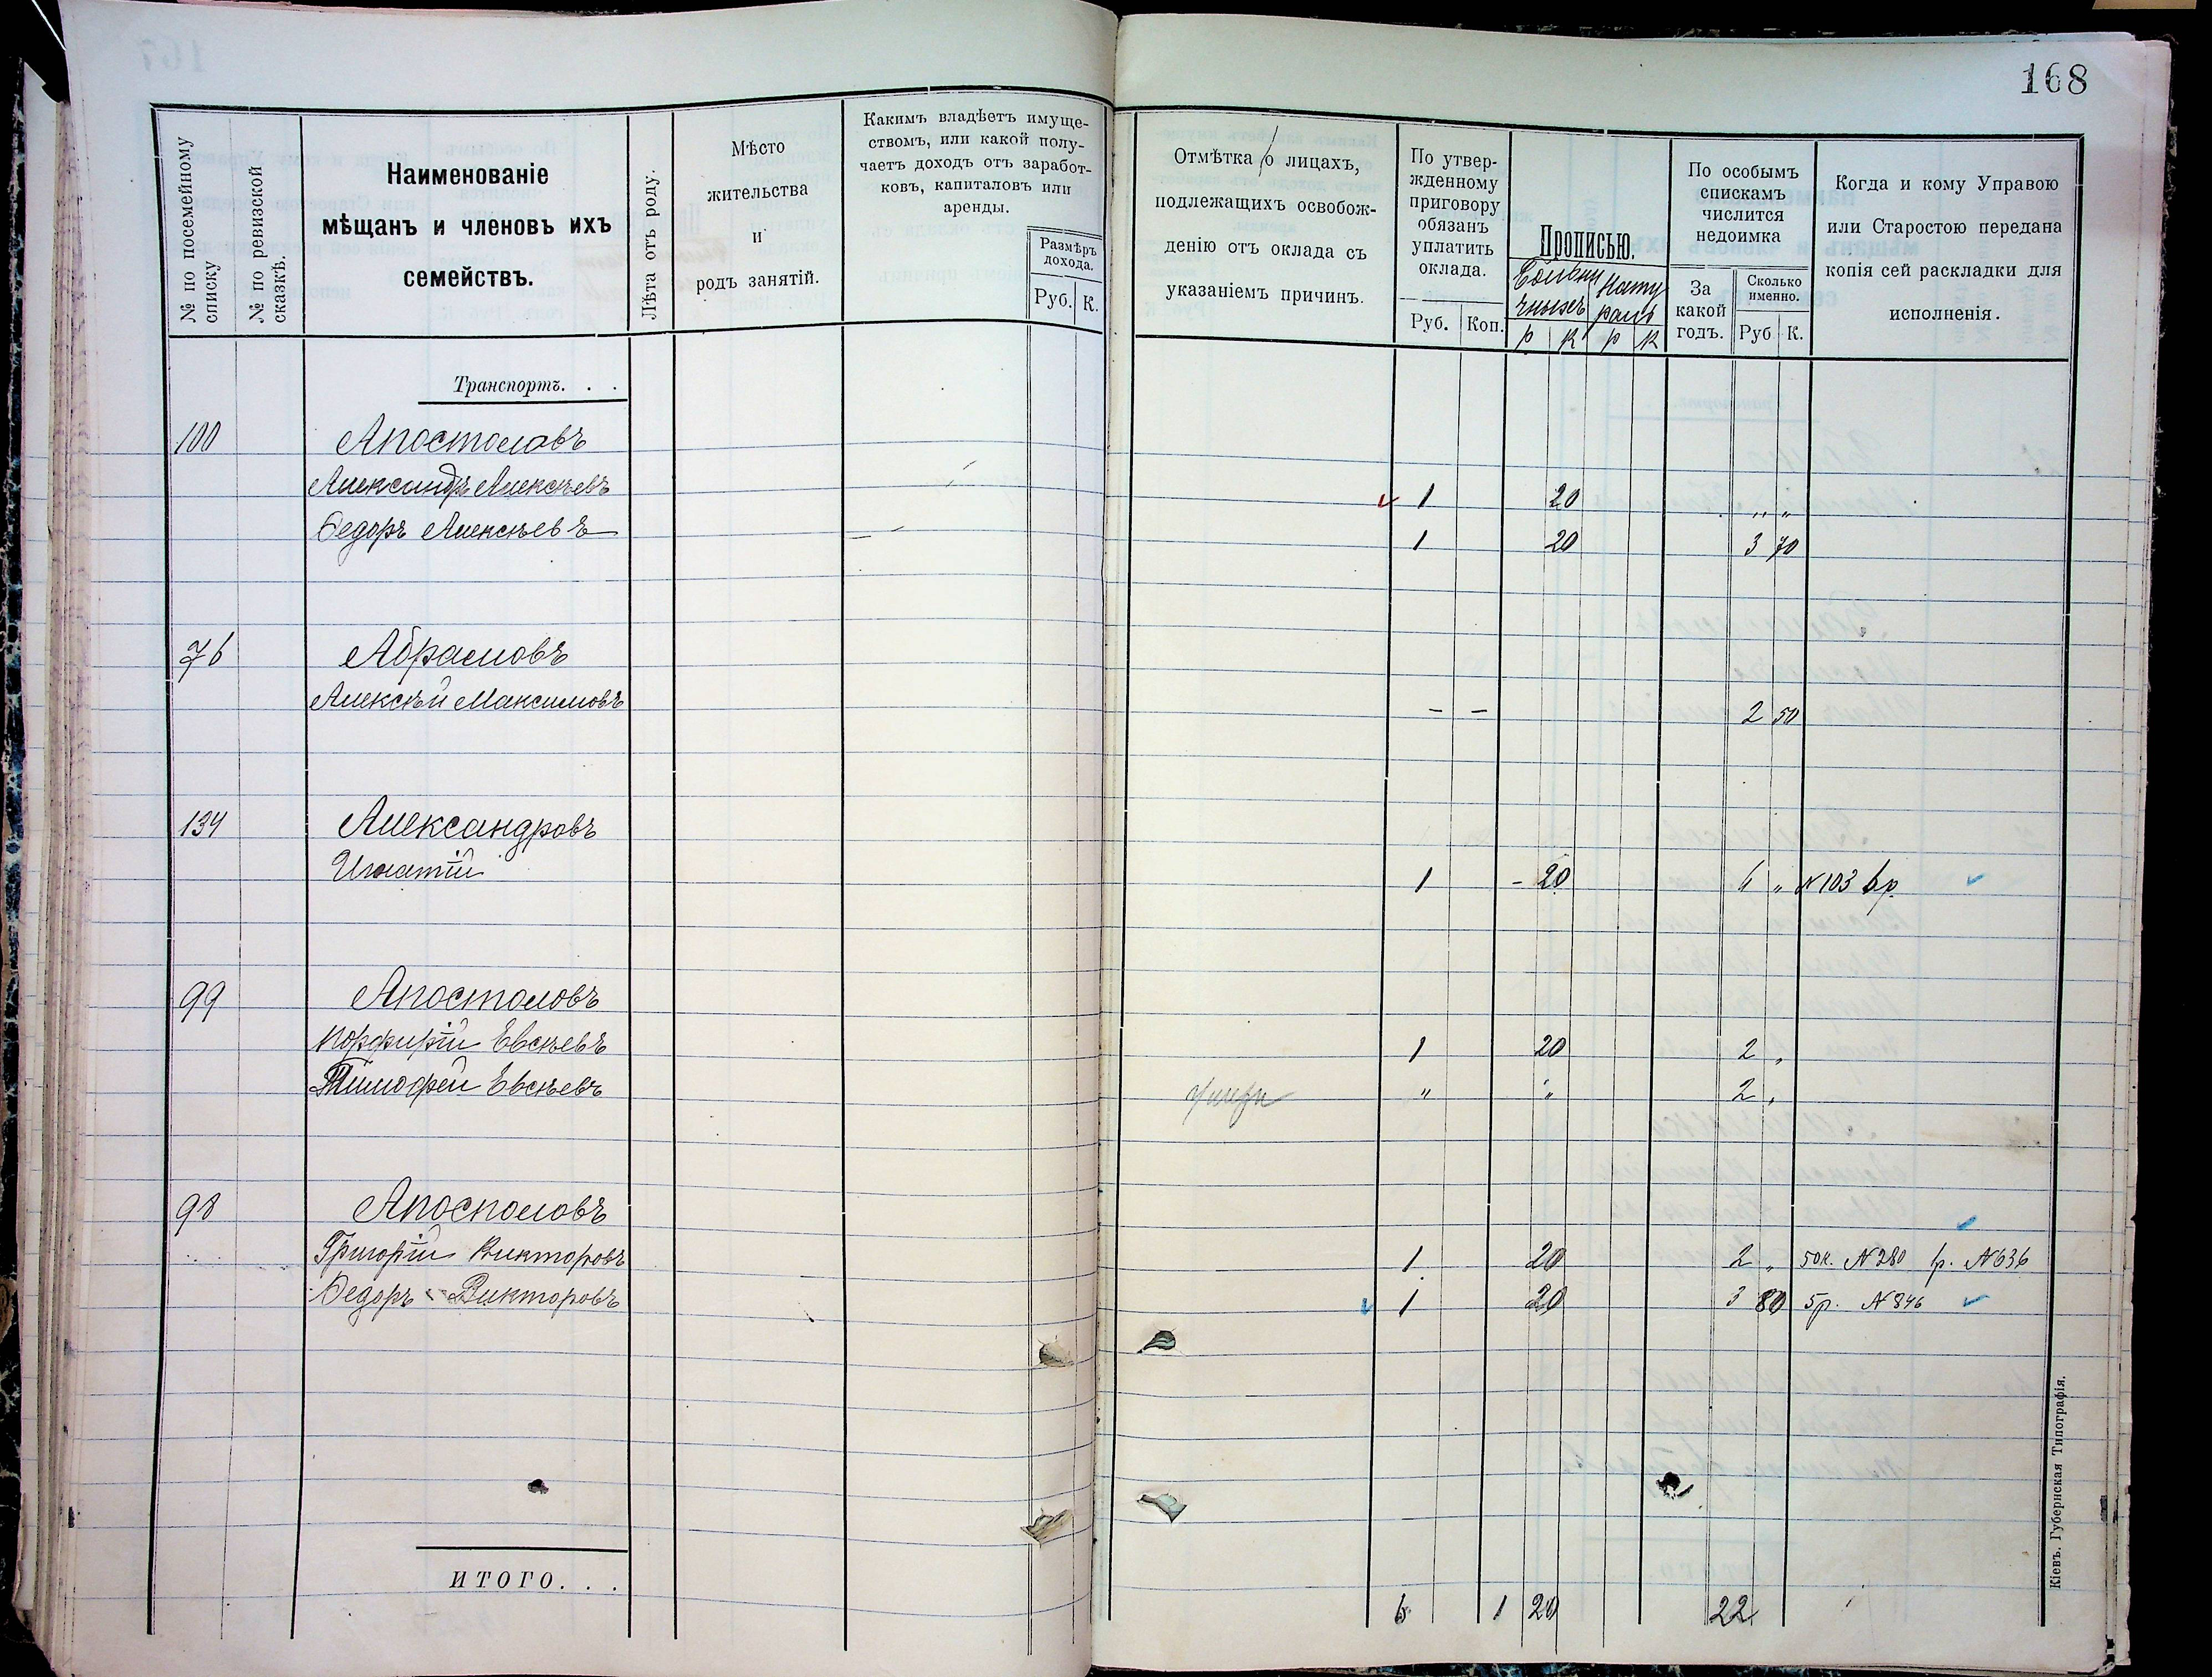 168
№ по посемейному списку
№ по ревизской сказкѣ.
Наименованіе
мѣщанъ и членовъ ихъ
семействъ.
Лѣта отъ роду.
Мѣсто
жительства
и
родъ занятій.
Каким​ъ владѣетъ имуще-
ствомъ, или какой полу-
чаетъ доходъ отъ заработ-
ковъ, капиталовъ или
аренды.
Размѣръ
дохода.
Руб. К.
Отмѣтка о лицахъ,
подлежащихъ освобож-
денію отъ оклада съ
указаніемъ причинъ.
По утвер-
жденному
приговору
обязанъ
уплатить
оклада.
Руб. Коп.
Прописью.
р к р к
По особымъ
спискамъ
числится
недоимка
За
какой
годъ.
Сколько
именно.
Руб К.
Когда и кому Управою
или Старостою передана
копія сей раскладки для
исполненія.
Транспортъ. . .
100 Апостоловъ
Александръ Алексѣевъ 1 20 „ „
Федоръ Алексѣевъ 1 20 3 70
76 Абрамовъ
Алексѣй Максимовъ – – 2 50
134 Александровъ
Игнатій 1 – 20 6 „ N 103 6р.
99 Апостоловъ
Порфирій Евсѣевъ 1 20 2 „
Тимофей Евсѣевъ „ „ 2 „
98 Апостоловъ
Григорій Викторовъ 1 20 2 „ 50к. N 280 N 636
Федоръ Викторовъ 1 20 3 80 5р. N 846
ИТОГО. . .
6 1 20 22
Кіевъ. Губернская Типографія.